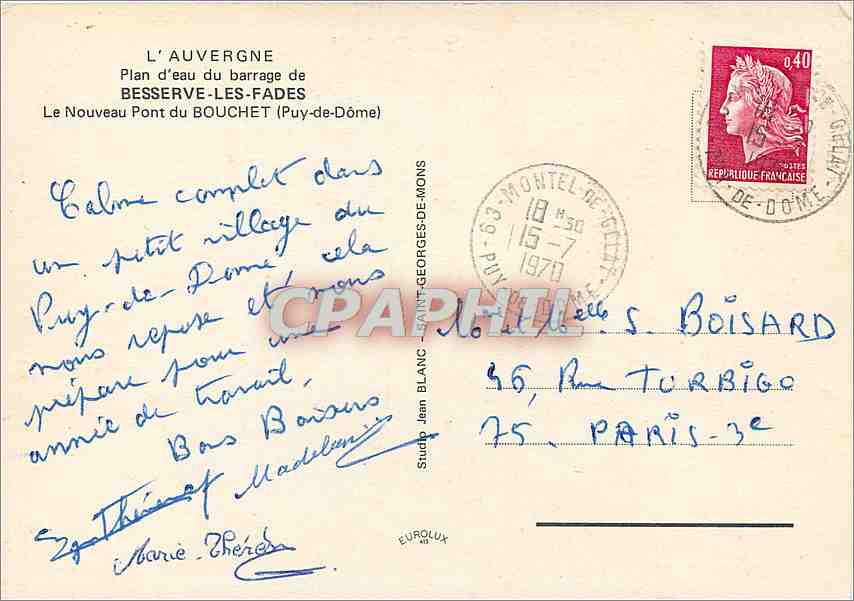 L'AUVERGNE
Plan d'eau du barrage de
BESSERVE-LES-FADES
Le Nouveau Pont du BOUCHET (Puy-de-Dôme)
Calme complet dans
un petit village du
Puy-de-Dôme, cela
nous repose et nous
prépare pour une
année de travail.
Bons Baisers
Madeleine
Marie-Thérèse
Studio Jean BLANC - SAINT-GEORGES-DE-MONS
EUROLUX
0,40
POSTES
REPUBLIQUE FRANÇAISE
GELAT
DE-DOME
63-MONTEL-DE-GELAT
18 H 30
15-7
1970
PUY DE DOME
CPAPHIL
Mr et Melle S. BOISARD
46, Rue TURBIGO
75. PARIS-3e